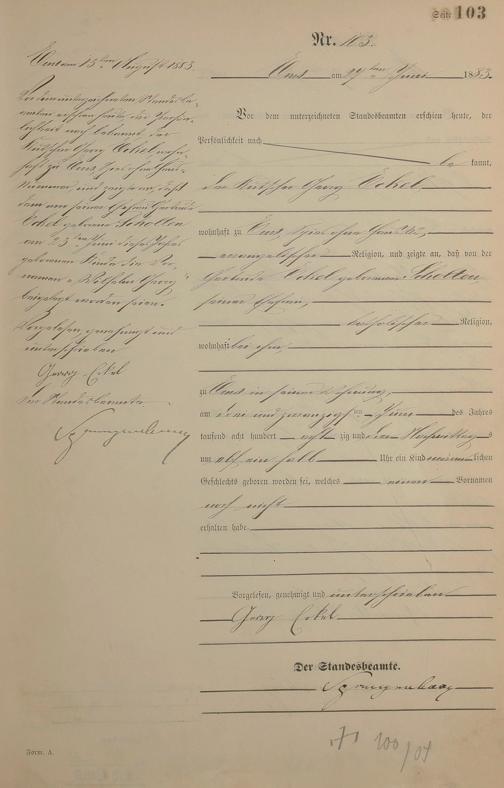 Seite 103
Nr. 103.
Ems am 29ten Juni 1883.
Vor dem unterzeichneten Standesbeamten erschien heute, der
Persönlichkeit nach
be kannt,
der Kutscher Georg Eckel
wohnhaft zu Ems,
evangelischer Religion, und zeigte an, daß von der
Gertrude Eckel geborenen Scholten
seiner Ehefrau,
katholischer Religion,
wohnhaft bei ihm
zu Ems in seiner Wohnung
am drei und zwanzigsten Juni des Jahres
tausend acht hundert acht zig und drei Nachmittags
um elf ein halb Uhr ein Kind männlichen
Geschlechts geboren worden sei, welches einen Vornamen
noch nicht
erhalten habe
Vorgelesen, genehmigt und unterschrieben
Georg Eckel
Der Standesbeamte.
Ems am 13ten August 1883.
Vor dem unterzeichneten Standesbe-
amten erschien heute, der Persön-
lichkeit nach bekannt, der
Kutscher Georg Eckel wohn-
haft zu Ems,
und zeigte an, daß
dem von seiner Ehefrau Gertrude
Eckel geborene Scholten
am 23ten Juni dieses Jahres
geborenen Kinde die Vor-
namen "Wilhelm Georg"
beigelegt worden seien.
Vorgelesen, genehmigt und
unterschrieben
Georg Eckel
Der Standesbeamte
Form. A.